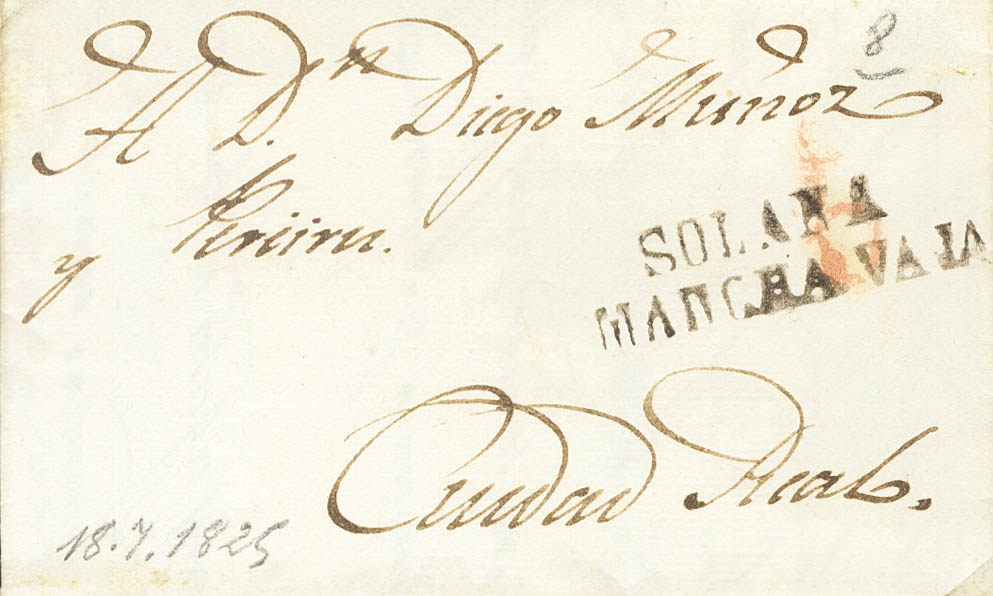 8
A Dn Diego Muñoz
y Pereiru.
SOLANA
MANCHA VAJA
Ciudad Real.
18.7.1825